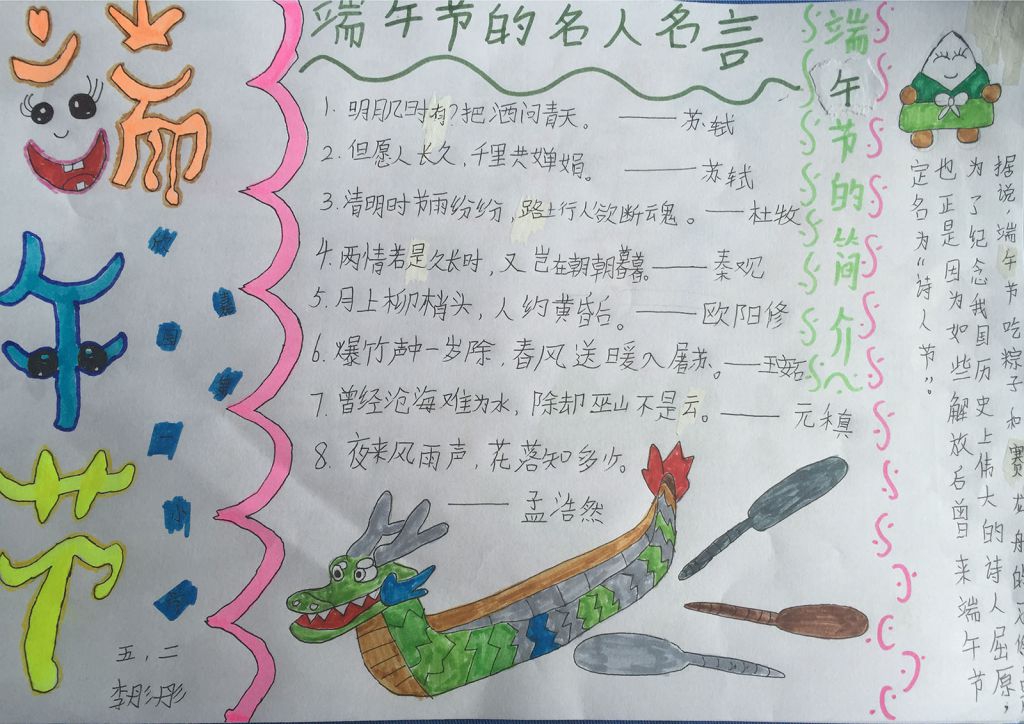 端午节
端午节的名人名言
1. 明月几时有?把酒问青天。——苏轼
2. 但愿人长久,千里共婵娟。——苏轼
3. 清明时节雨纷纷,路上行人欲断魂。——杜牧
4. 两情若是久长时,又岂在朝朝暮暮。——秦观
5. 月上柳梢头,人约黄昏后。——欧阳修
6. 爆竹声中一岁除,春风送暖入屠苏。——王安石
7. 曾经沧海难为水,除却巫山不是云。——元稹
8. 夜来风雨声,花落知多少。
——孟浩然
端午节的简介
据说,端午节吃粽子和赛龙舟的
为了纪念我国历史上伟大的诗人屈原,
也正是因为如些解放后曾来端午节
定名为“诗人节”。
欣
嘉
园
一
小
五,二
李彤彤